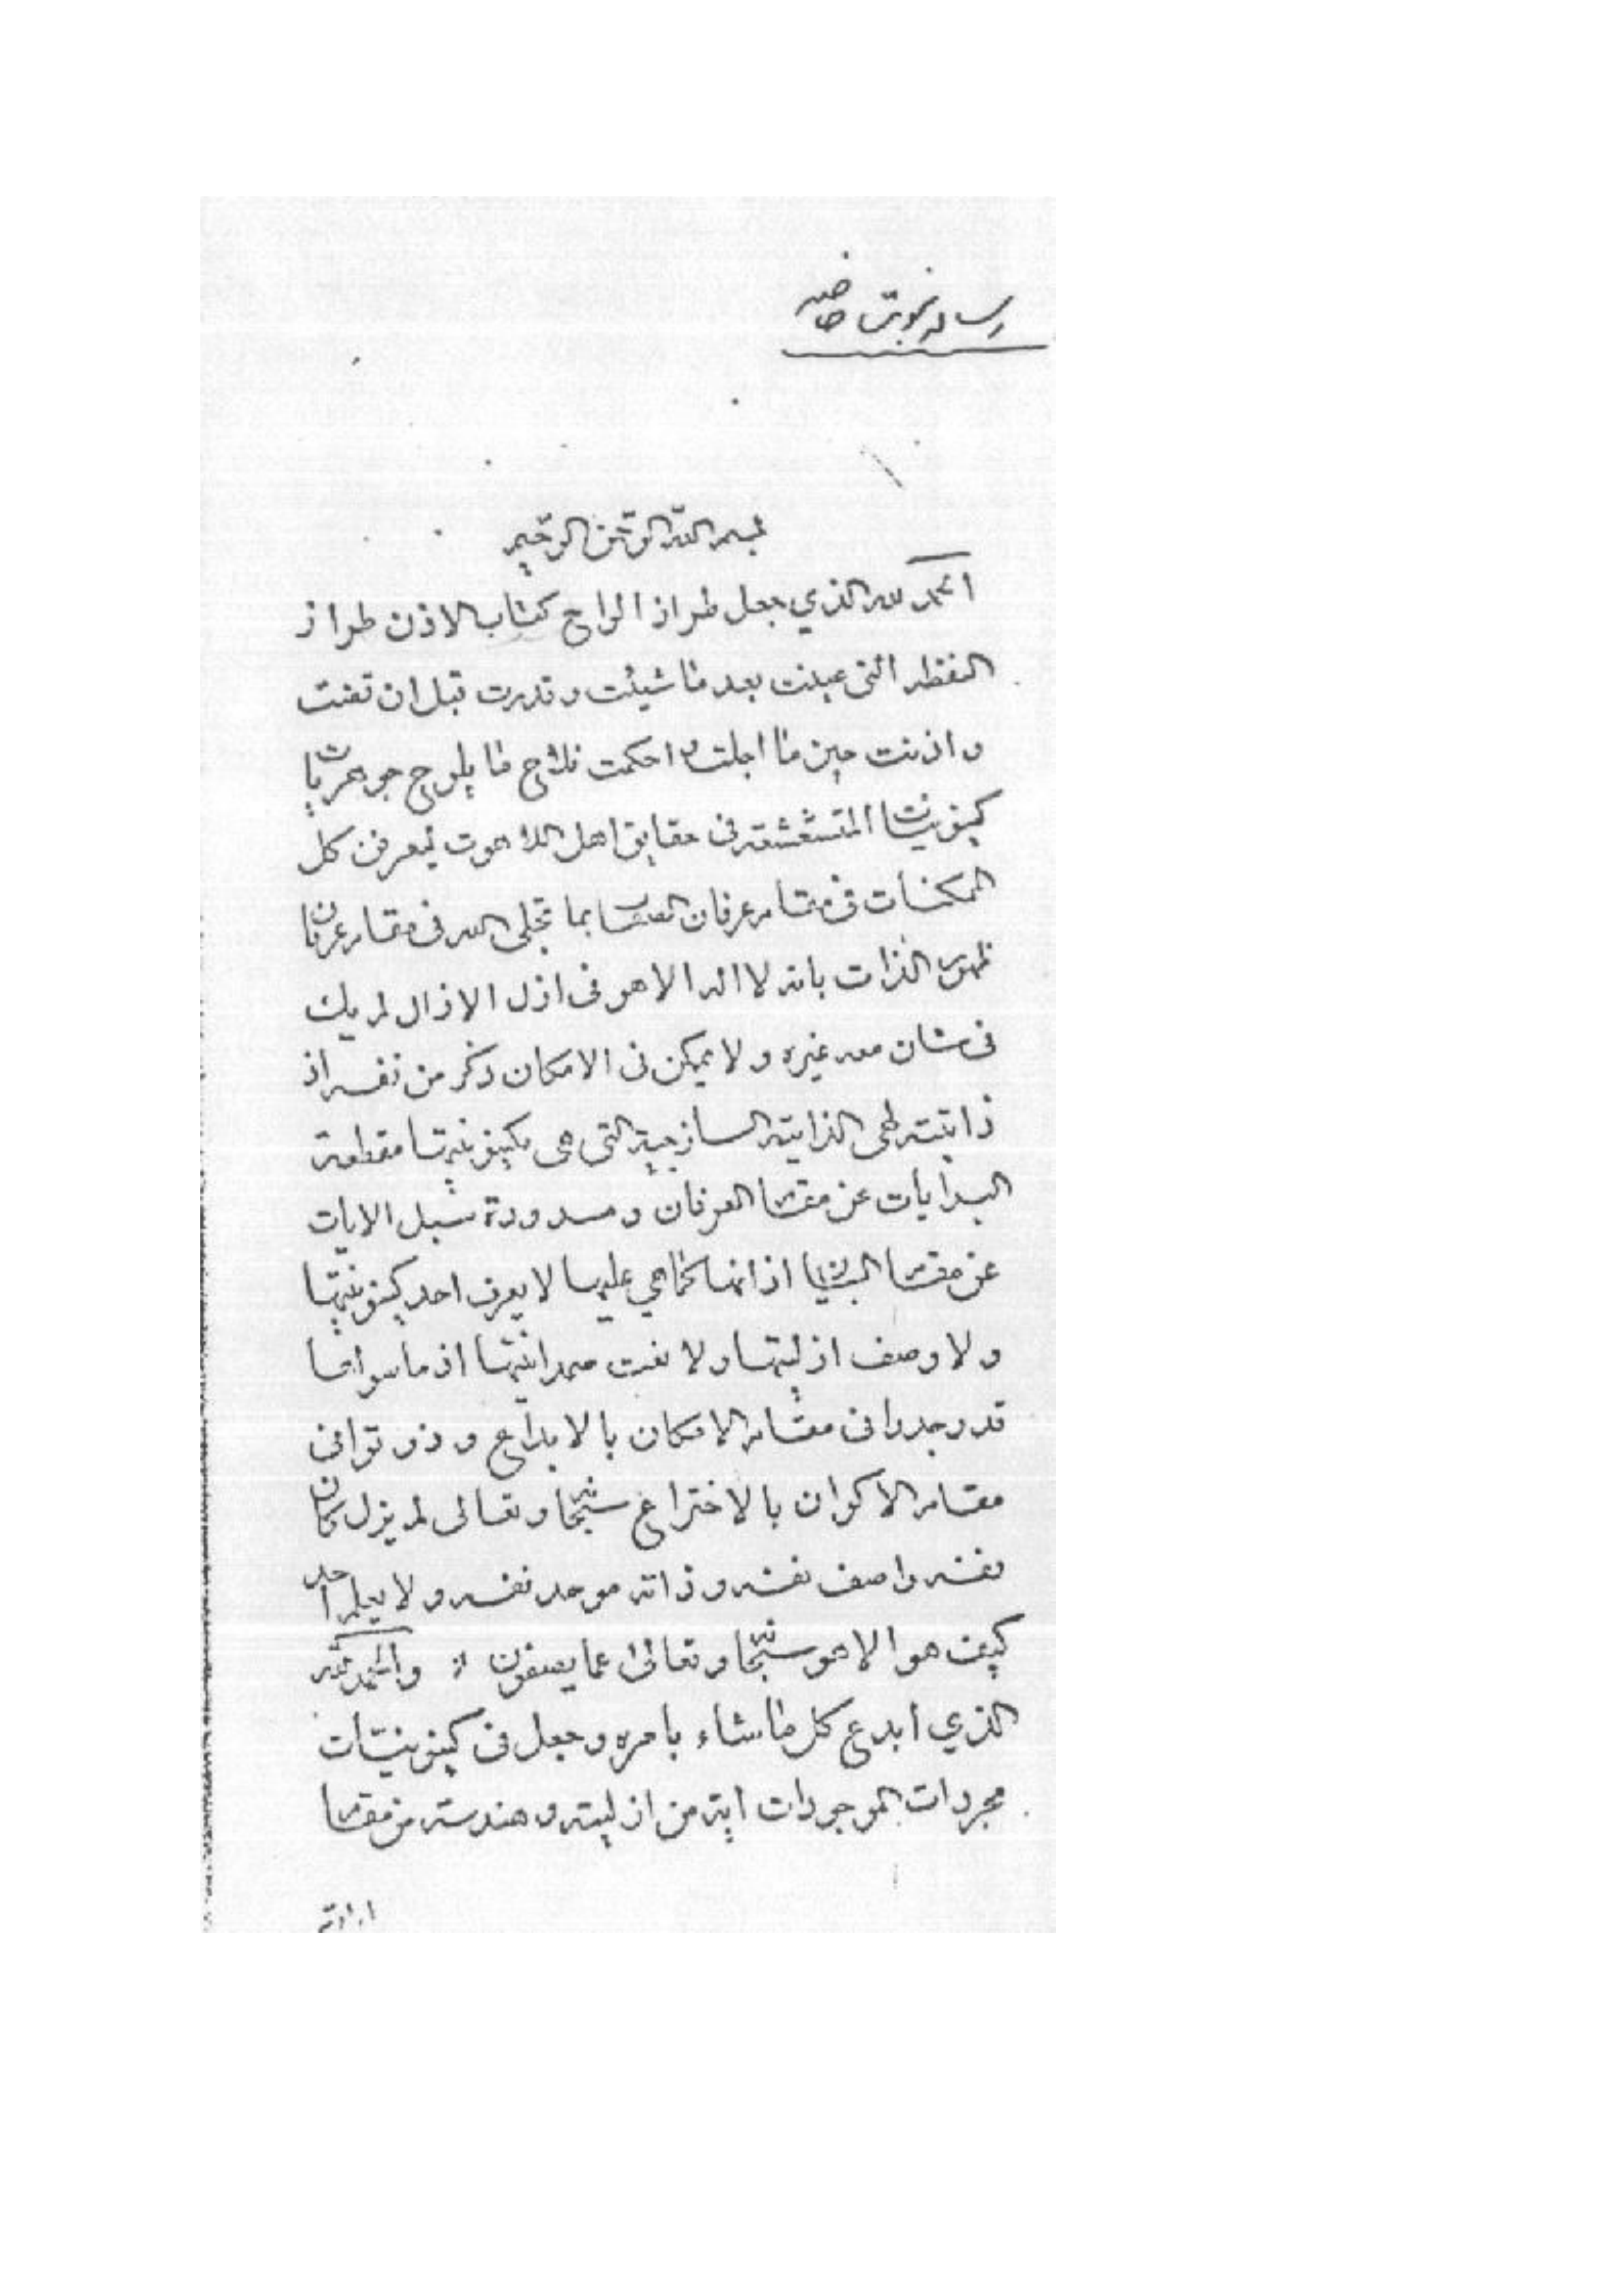 رساله نبوت خاصه
بسم الله الرحمن الرحيم
الحمد لله الذي جعل طراز الواح كتاب الاذن طراز
النقطه التی عينت بعد ما شيئت و قدرت قبل ان قضت
و اذنت حين ما اجلت و احكمت فلاح ما يلوح جوهريات
كينونيات المتشعشعة فی حقايق اهل اللاهوت ليعرفن كل
الممكنات فی مقام عرفان الصفات بما تجلی الله فی مقام عرفان
ظهور الذات بانه لا اله الا هو فی ازل الازال لم يك
فی شان معه غيره و لا يمكن فی الامكان ذكر من نفسه اذ
ذاتيته لهی الذاتية الساذجية التی هی بكينونيتها مقطعة
البدايات عن مقام العرفان و مسدودة سبل الايات
عن مقام البيان اذ انها كما هي عليها لا يعرف احد كينونيتها
و لا وصف ازليتها و لا نعت صمدانيتها اذ ما سواها
قد وجدوا فی مقام الامكان بالابداع و ذوتوا فی
مقام الاكوان بالاختراع سبحانه و تعالی لم يزل كان
نفسه واصف نفسه و ذاته موحد نفسه و لا يعلم احد
كيف هو الا هو سبحانه و تعالی عما يصفون و الحمد لله
الذي ابدع كل ما شاء بامره و جعل فی كينونيات
مجردات الموجودات اية من ازليته و هندسة من مقام
ارادته